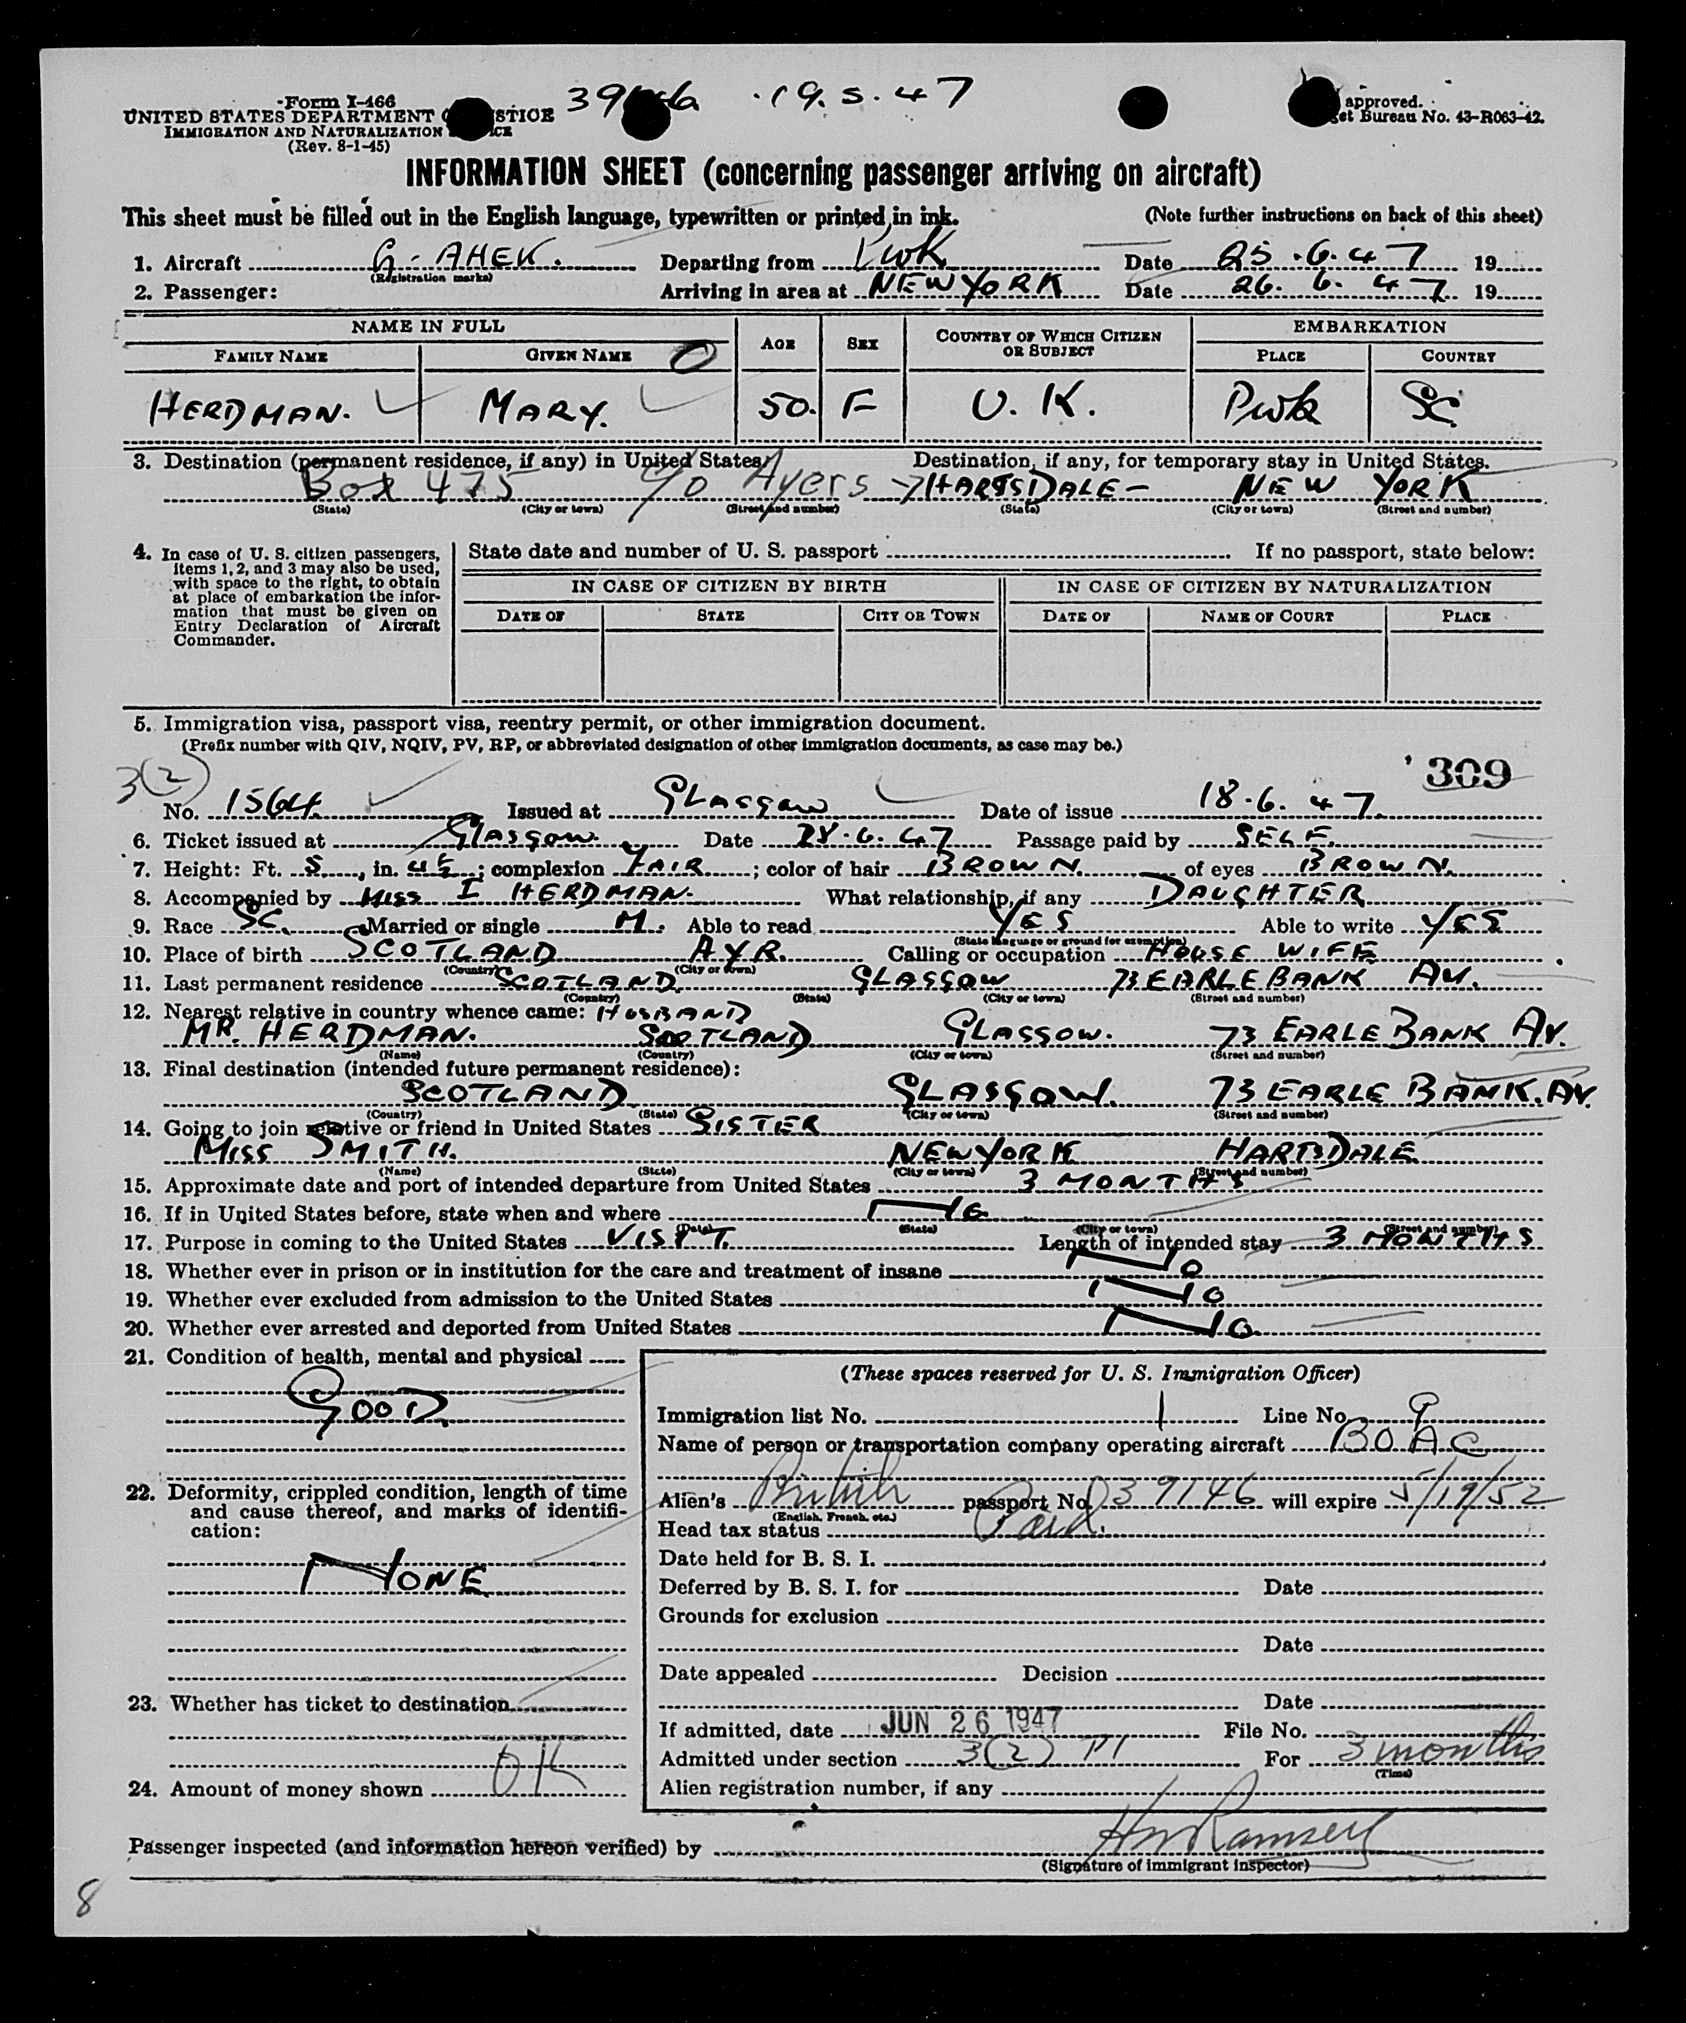 Form I-466
UNITED STATES DEPARTMENT STICE 19.5.47 approved.
IMMIGRATION AND NATURALIZATION ICE et Bureau No. 43-R063-42.
(Rev. 8-1-45)
INFORMATION SHEET (concerning passenger arriving on aircraft)
This sheet must be filled out in the English language, typewritten or printed in ink. (Note further instructions on back of this sheet)
1. Aircraft G-AHEK. Departing from PWK Date 25.6.47 19
(Registration marks)
2. Passenger: Arriving in area at NEW YORK Date 26.6.47 19
NAME IN FULL AGE SEX COUNTRY OF WHICH CITIZEN OR SUBJECT EMBARKATION
FAMILY NAME GIVEN NAME PLACE COUNTRY
HERDMAN. MARY. 50. F U.K. Pwk SC
3. Destination (permanent residence, if any) in United States. Destination, if any, for temporary stay in United States.
Box 475 c/o Ayers HARTSDALE - NEW YORK
(State) (City or town) (Street and number) (State) (City or town) (Street and number)
4. In case of U. S. citizen passengers, items 1, 2, and 3 may also be used, with space to the right, to obtain at place of embarkation the information that must be given on Entry Declaration of Aircraft Commander.
State date and number of U. S. passport If no passport, state below:
IN CASE OF CITIZEN BY BIRTH IN CASE OF CITIZEN BY NATURALIZATION
DATE OF STATE CITY OR TOWN DATE OF NAME OF COURT PLACE
5. Immigration visa, passport visa, reentry permit, or other immigration document.
(Prefix number with QIV, NQIV, PV, RP, or abbreviated designation of other immigration documents, as case may be.)
3(2) 309
No. 1564. Issued at GLASGOW Date of issue 18.6.47.
6. Ticket issued at GLASGOW. Date 28.6.47 Passage paid by SELF.
7. Height: Ft. 5, in. 4½; complexion FAIR; color of hair BROWN. of eyes BROWN.
8. Accompanied by MISS I HERDMAN. What relationship, if any DAUGHTER
9. Race SC. Married or single M. Able to read YES Able to write YES
(State language or ground for exemption)
10. Place of birth SCOTLAND AYR. Calling or occupation HOUSE WIFE.
(Country) (City or town)
11. Last permanent residence SCOTLAND. GLASGOW 73 EARLEBANK AV.
(Country) (State) (City or town) (Street and number)
12. Nearest relative in country whence came: HUSBAND
MR. HERDMAN. SCOTLAND GLASGOW. 73 EARLE BANK AV.
(Name) (Country) (City or town) (Street and number)
13. Final destination (intended future permanent residence):
SCOTLAND GLASGOW. 73 EARLE BANK. AV.
(Country) (State) (City or town) (Street and number)
14. Going to join relative or friend in United States SISTER
MISS SMITH. NEW YORK HARTSDALE
(Name) (State) (City or town) (Street and number)
15. Approximate date and port of intended departure from United States 3 MONTHS
16. If in United States before, state when and where No
(Date) (State) (City or town) (Street and number)
17. Purpose in coming to the United States VISIT. Length of intended stay 3 MONTHS
18. Whether ever in prison or in institution for the care and treatment of insane No
19. Whether ever excluded from admission to the United States No
20. Whether ever arrested and deported from United States No.
21. Condition of health, mental and physical
GOOD.
22. Deformity, crippled condition, length of time and cause thereof, and marks of identification:
NONE
23. Whether has ticket to destination
24. Amount of money shown OK
(These spaces reserved for U. S. Immigration Officer)
Immigration list No. 1 Line No. 9
Name of person or transportation company operating aircraft BOAC
Alien's British passport No. 39146 will expire 5/19/52
(English, French, etc.)
Head tax status Paid.
Date held for B. S. I.
Deferred by B. S. I. for Date
Grounds for exclusion
Date
Date appealed Decision
Date
If admitted, date JUN 26 1947 File No.
Admitted under section 3(2) For 3 months
(Time)
Alien registration number, if any
Passenger inspected (and information hereon verified) by Ramsey
(Signature of immigrant inspector)
8